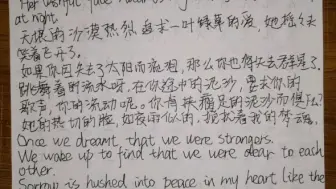 Her wishful face haunts my
at night.
无垠的沙漠热烈追求一叶绿草的爱,她摇摇头
笑着飞开了。
如果你因失去了太阳而流泪,那么你也将失去群星了。
跳舞着的流水呀,在你途中的泥沙,要求你的
歌声,你的流动呢。你肯挟瘸足的泥沙而俱下么?
她的热切的脸,如夜雨似的,搅扰着我的梦魂。
Once we dreamt that we were strangers.
We wake up to find that we were dear to each
other.
Sorrow is hushed into peace in my heart like the